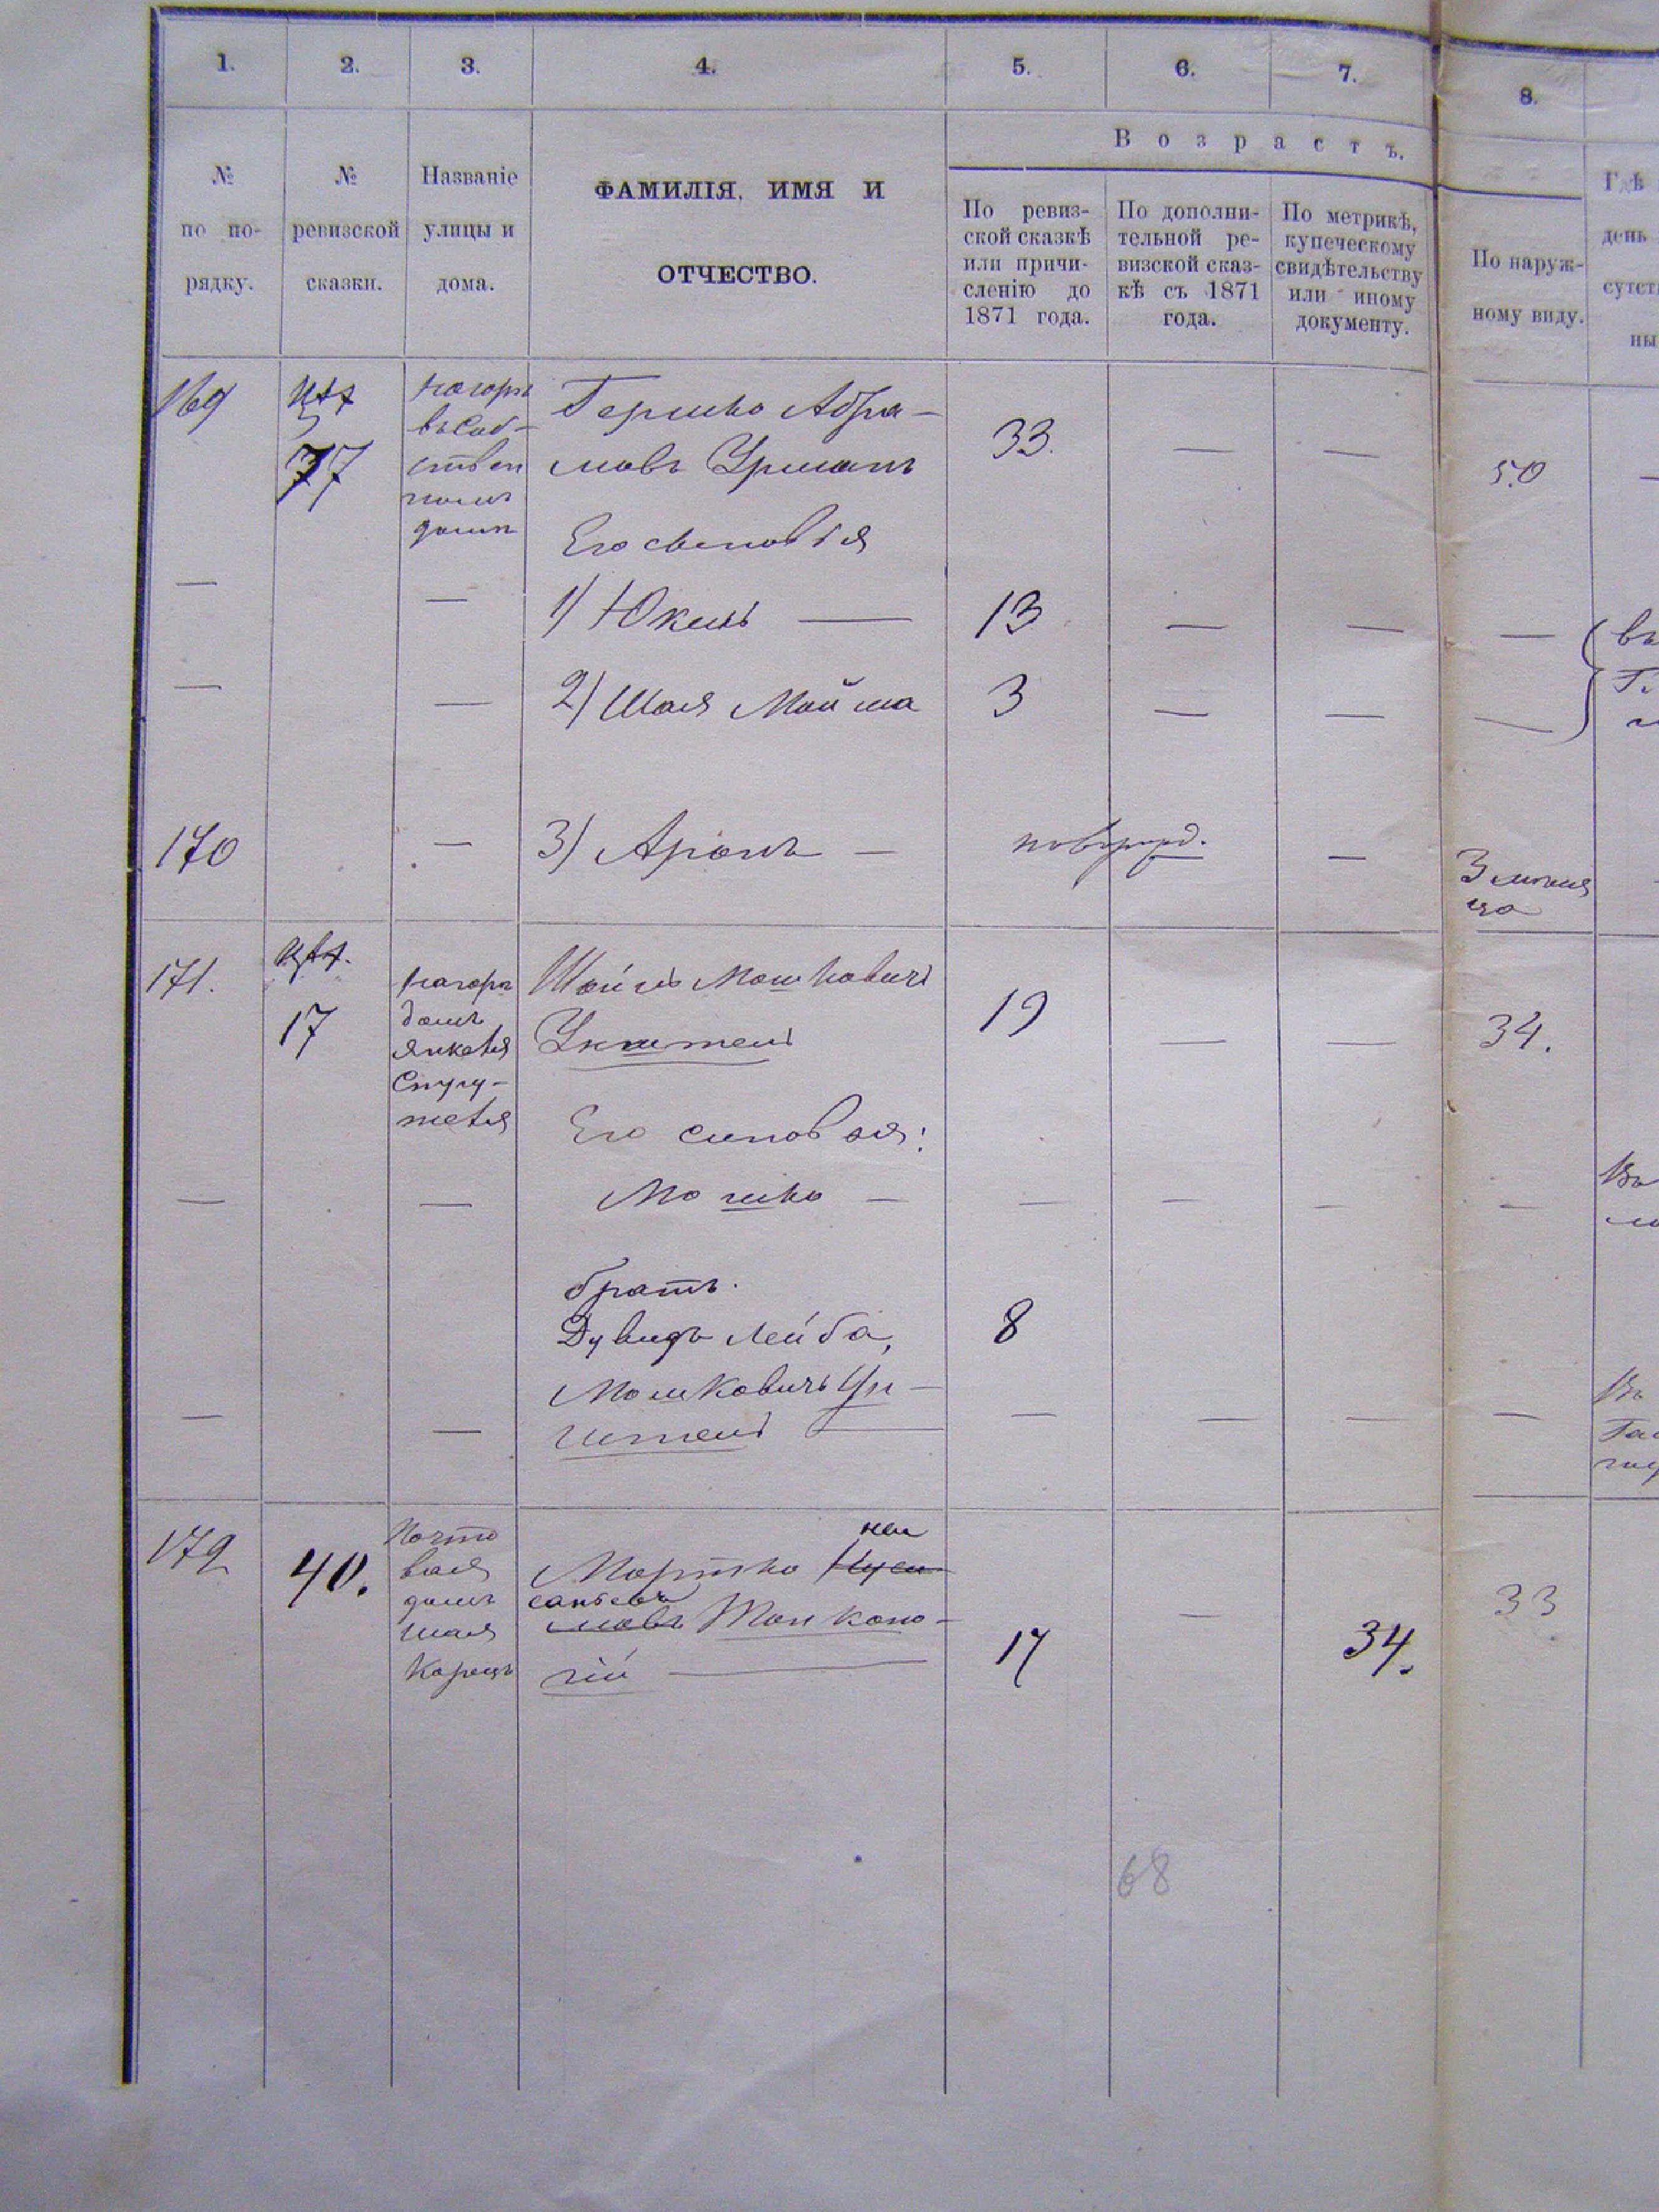 1. 2. 3. 4. 5. 6. 7. 8.
Возрастъ.
№ по порядку.
№ ревизской сказки.
Названіе улицы и дома.
ФАМИЛІЯ, ИМЯ И
ОТЧЕСТВО.
По ревиз-
ской сказкѣ
или причи-
сленію до
1871 года.
По дополни-
тельной ре-
визской сказ-
кѣ съ 1871
года.
По метрикѣ,
купеческому
свидѣтельству
или иному
документу.
По наруж-
ному виду.
Гдѣ
день
сутст
ны
169
77
нагорн
въ соб-
ствен
номъ
домѣ
Гершко Абра-
мовъ Урманъ
33.
50
Его сыновья
— — 1) Юкель — 13 — — —
— — 2) Шая Мойша 3 — — —
170 — 3) Аронъ — новорожд. — 3 месяца
171.
17
нагорн
домъ
Янкеля
Мошковичъ
19 — — 34.
Его сыновья:
— — Мошко — — — — —
братъ.
Дувидъ Лейба,
8
Мошковичъ
172
40.
Почто
вая
домъ
Шая
Корецъ
Мортко
17 — 34. 33
68